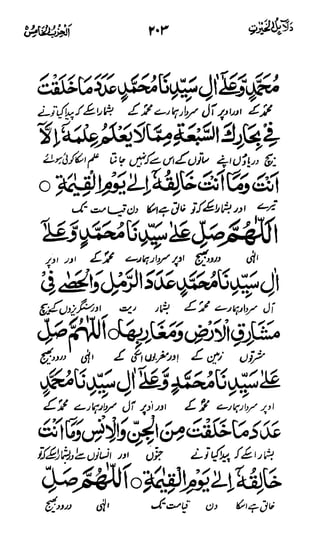 دلائل الخیرات ۲۰۳ الحزب الخامس
مُحَمَّدٍ وَّعَلٰٓى اٰلِ سَيِّدِنَا مُحَمَّدٍ عَدَدَ مَا خَلَقْتَ
محمدؐ کے اور اوپر آل سردار ہمارے محمدؐ کے بشمار اسکے کہ پیدا کیا تو نے
فِيْ بِحَارِكَ السَّبْعَةِ مِمَّا لَا يَعْلَمُ عِلْمَهٗٓ اِلَّآ
بیچ دریاؤں اپنے ساتوں کے اس سے کہ نہیں جانتا علم اسکا کوئی سوائے
اَنْتَ وَمَآ اَنْتَ خَالِقُهٗٓ اِلٰى يَوْمِ الْقِيٰمَةِ ○
تیرے اور بشمار اسکے کہ تو خالق ہے اسکا دن قیامت تک
اَللّٰهُمَّ صَلِّ عَلٰى سَيِّدِنَا مُحَمَّدٍ وَّعَلٰٓى
الٰہی درود بھیج اوپر سردار ہمارے محمدؐ کے اور اوپر
اٰلِ سَيِّدِنَا مُحَمَّدٍ عَدَدَ الرَّمْلِ وَالْحَصٰى فِيْ
آل سردار ہمارے محمدؐ کے بشمار ریت اور سنگریزوں کے بیچ
مَشَارِقِ الْاَرْضِ وَمَغَارِبِهَا ○ اَللّٰهُمَّ صَلِّ
مشرقوں زمین کے اور مغربوں اسکی کے الٰہی درود بھیج
عَلٰى سَيِّدِنَا مُحَمَّدٍ وَّعَلٰٓى اٰلِ سَيِّدِنَا مُحَمَّدٍ
اوپر سردار ہمارے محمدؐ کے اور اوپر آل سردار ہمارے محمدؐ کے
عَدَدَ مَا خَلَقْتَ مِنَ الْجِنِّ وَالْاِنْسِ وَمَآ اَنْتَ
بشمار اسکے کہ پیدا کیا تو نے جنوں اور انسانوں سے اور بشمار اسکے کہ تو
خَالِقُهٗٓ اِلٰى يَوْمِ الْقِيٰمَةِ ○ اَللّٰهُمَّ صَلِّ
خالق ہے اسکا دن قیامت تک الٰہی درود بھیج